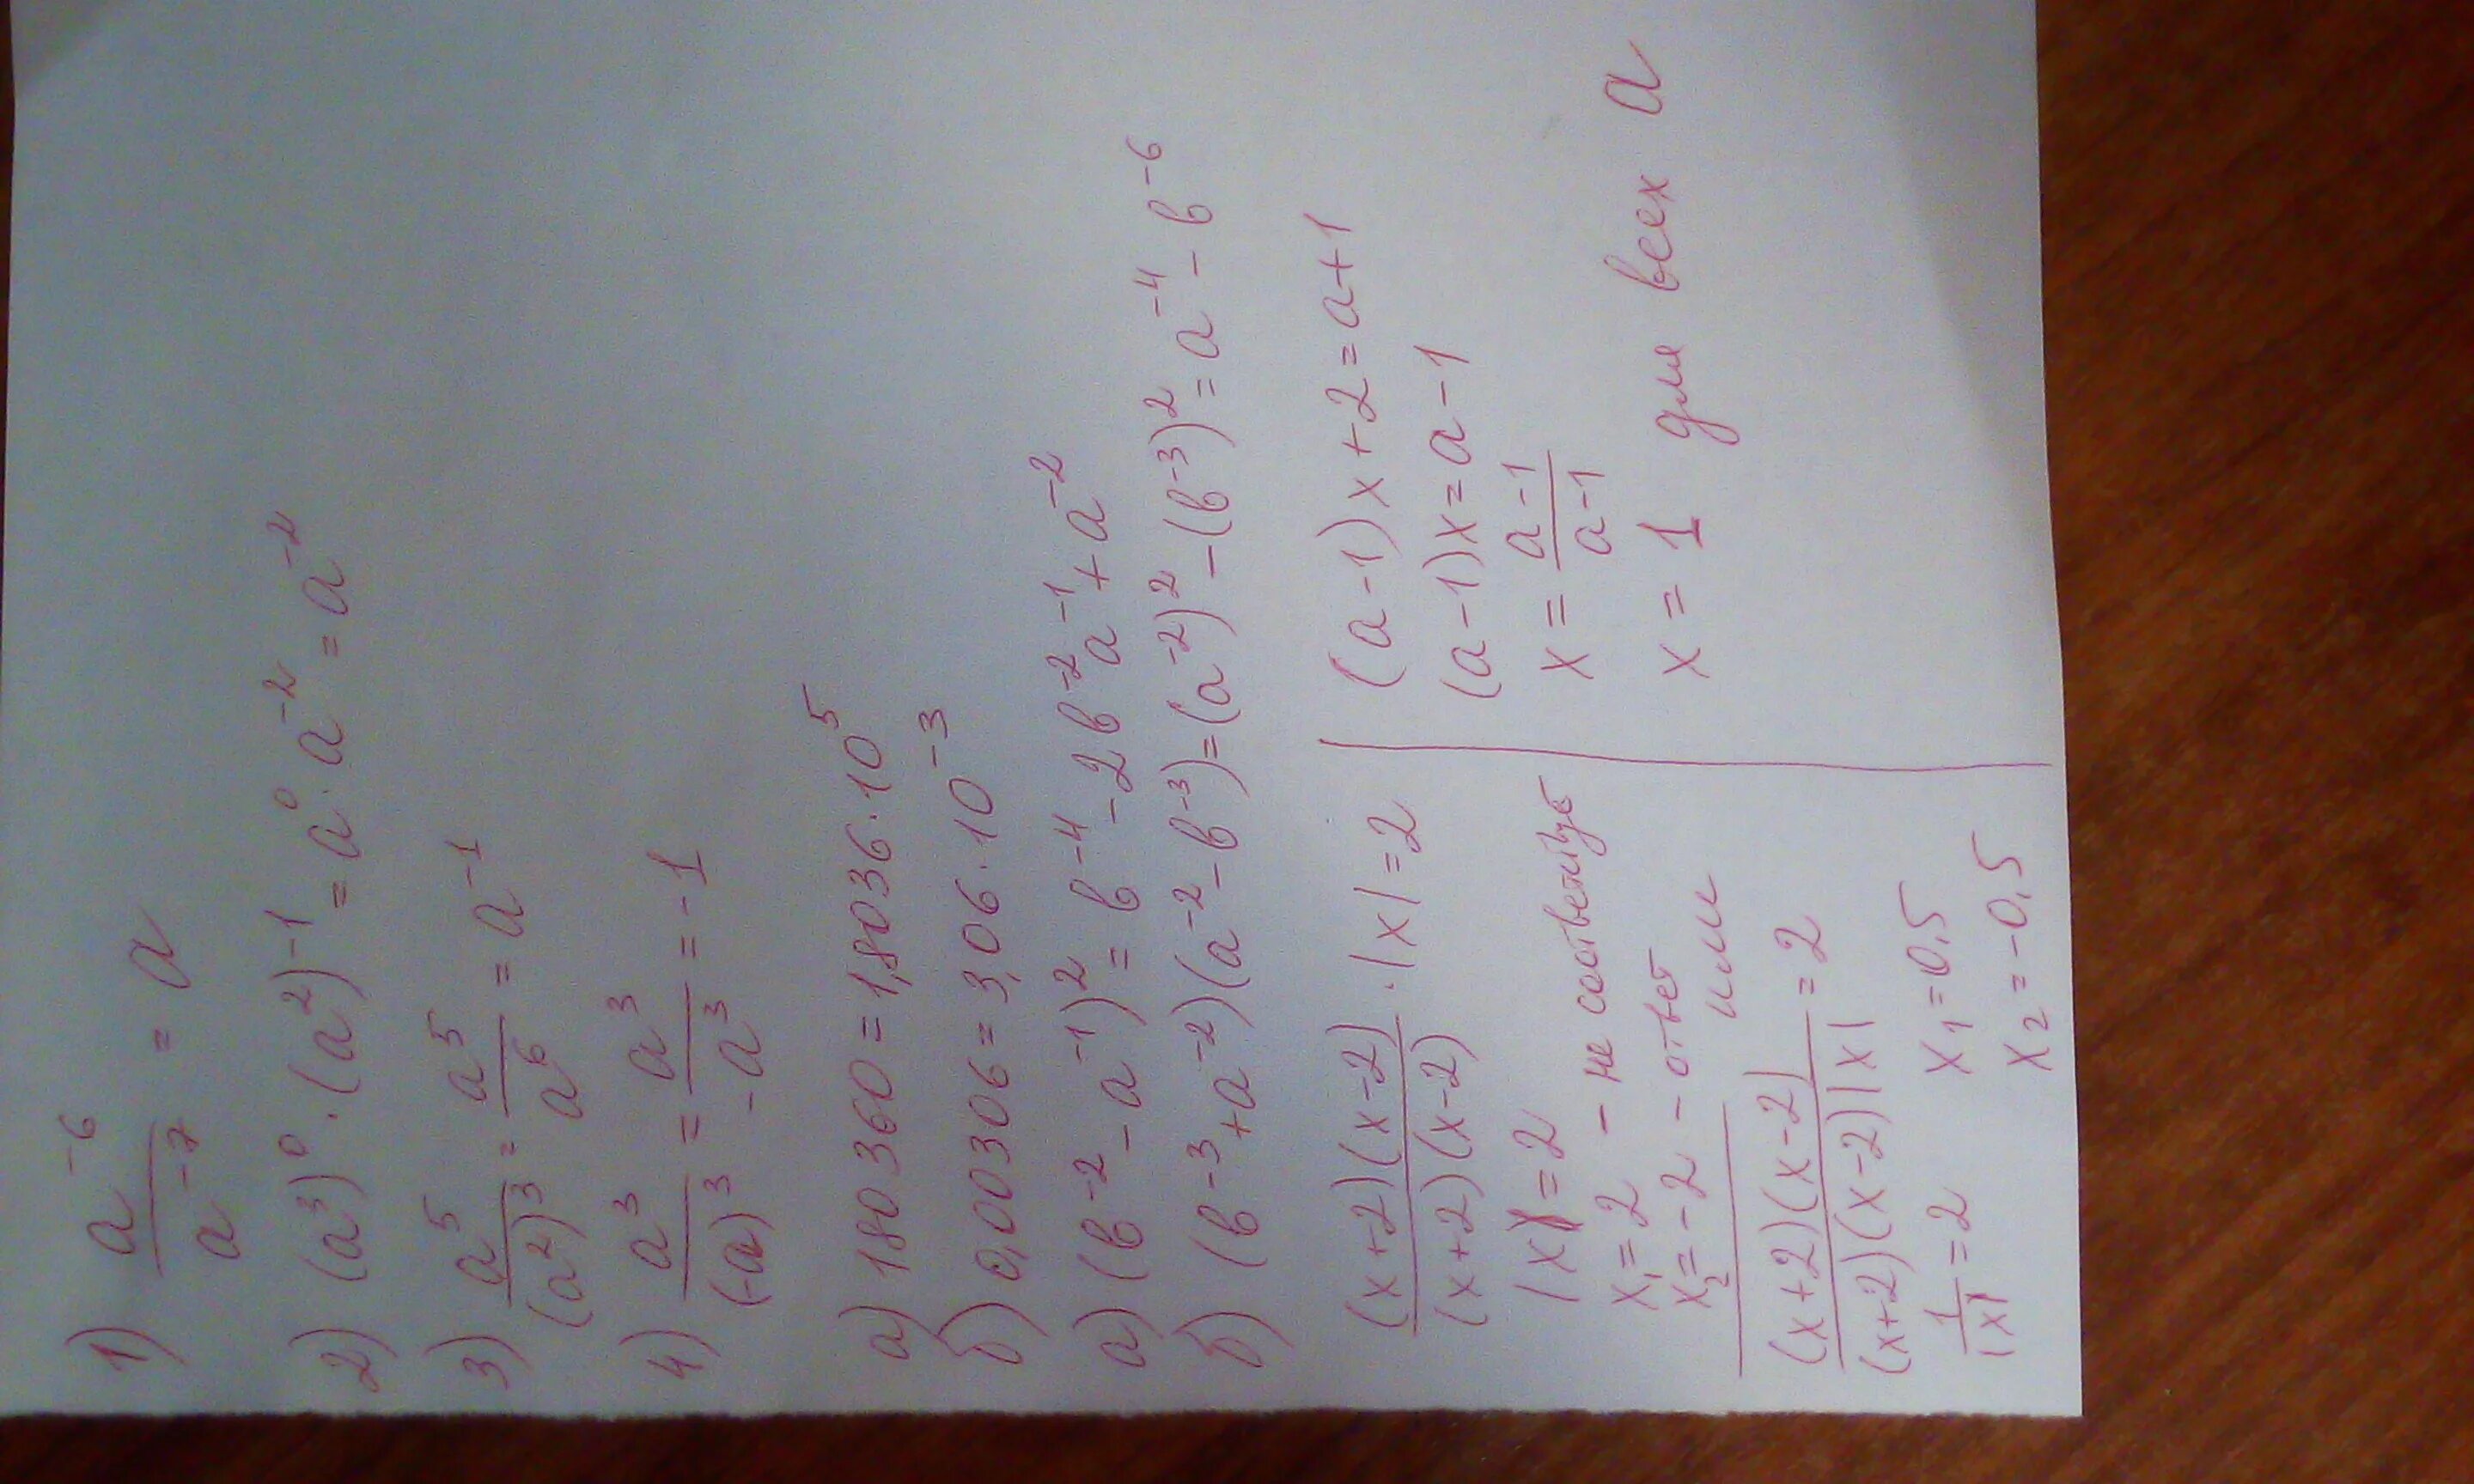 1) a⁻⁶/a⁻⁷ = a
2) (a³)⁰ · (a²)⁻¹ = a⁰ · a⁻² = a⁻²
3) a⁵/(a²)³ = a⁵/a⁶ = a⁻¹
4) a³/(-a)³ = a³/-a³ = -1
а) 180360 = 1,8036 · 10⁵
б) 0,00306 = 3,06 · 10⁻³
а) (в⁻² - a⁻¹)² = в⁻⁴ - 2в⁻²a⁻¹ + a⁻²
б) (в⁻³ + a⁻²)(a⁻² - в⁻³) = (a⁻²)² - (в⁻³)² = a⁻⁴ - в⁻⁶
(x+2)(x-2)/(x+2)(x-2) · |x| = 2
|x| = 2
x₁ = 2 - не соответствует
x₂ = -2 - ответ
или
(x+2)(x-2)/(x+2)(x-2)|x| = 2
1/|x| = 2 x₁ = 0,5
x₂ = -0,5
(a-1)x + 2 = a + 1
(a-1)x = a - 1
x = a-1/a-1
x = 1 для всех a